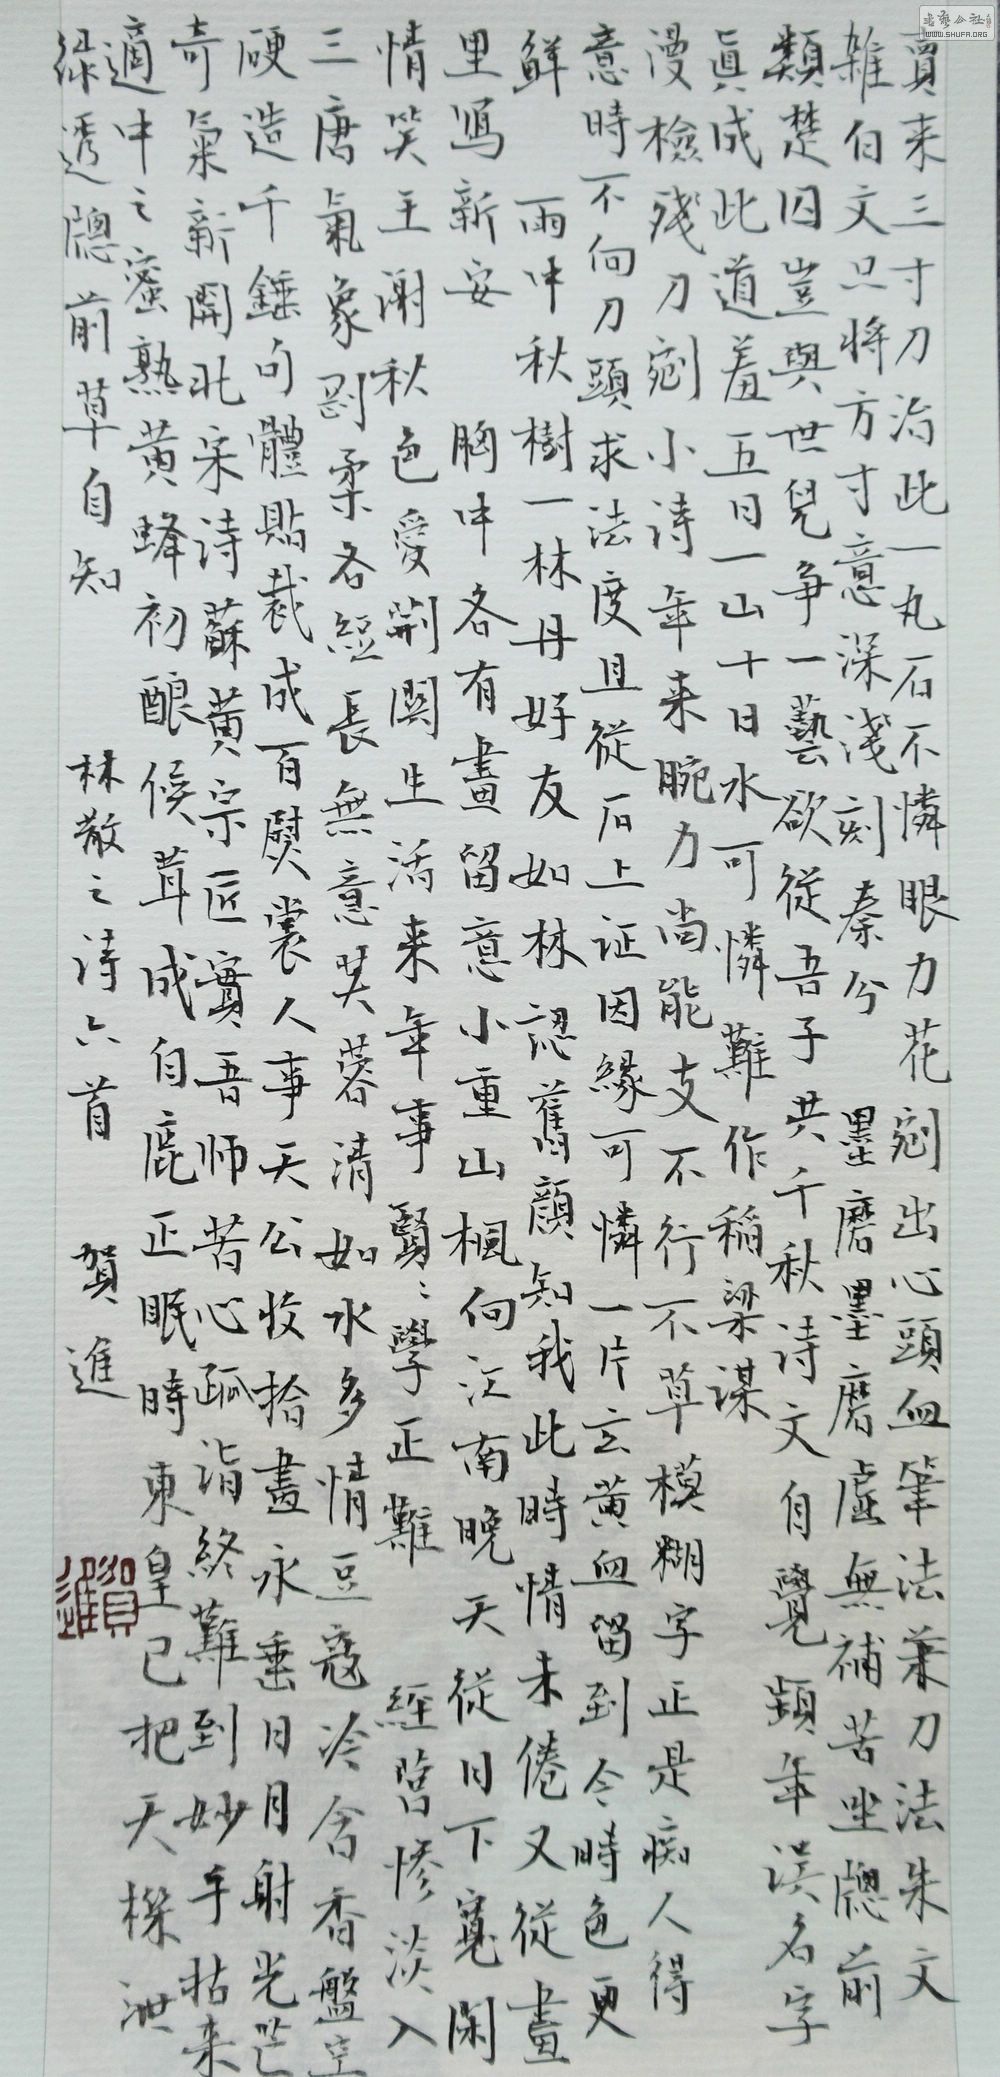 賣来三寸刀治此一丸石不憐眼力花剜出心頭血筆法兼刀法朱文
雜白文只将方寸意深淺刻秦兮 墨磨墨磨虚無補苦坐牕前
類楚囚豈與世兒争一藝欲從吾子共千秋詩文自覺頻年误名字
真成此道羞五日一山十日水可憐難作稲梁谋
漫檢残刀剜小詩 年来腕力尚能支不行行不草模糊字正是痴人得
意時不向刀頭求法度且從石上证因緣可憐一片玄黄血留到今時色更
鮮 雨中秋樹一林丹好友如林認舊顔知我此時情未倦又從畫
里寫新安 胸中各有畫留意小重山楓向江南晚天從日下寬閑
情笑王謝秋色愛荆關生活来年事賢〻學正難 經営惨淡入
三唐氣象剛柔各經長無意芙蓉清如水多情豆蔻冷含香盤空
硬造千錘句體貼裁成百熨裳人事天公收拾盡永垂日月射光芒
奇氣新開北宋詩蘇黄宗匠實吾师苦心孤诣終難到妙手拈来
適中之蜜熟黄蜂初酿候茸成白鹿正眠時東皇已把天機泄
绿透牕前草自知 林散之詩六首 賀進
賀進
書藝公社
WWW.SHUFA.ORG